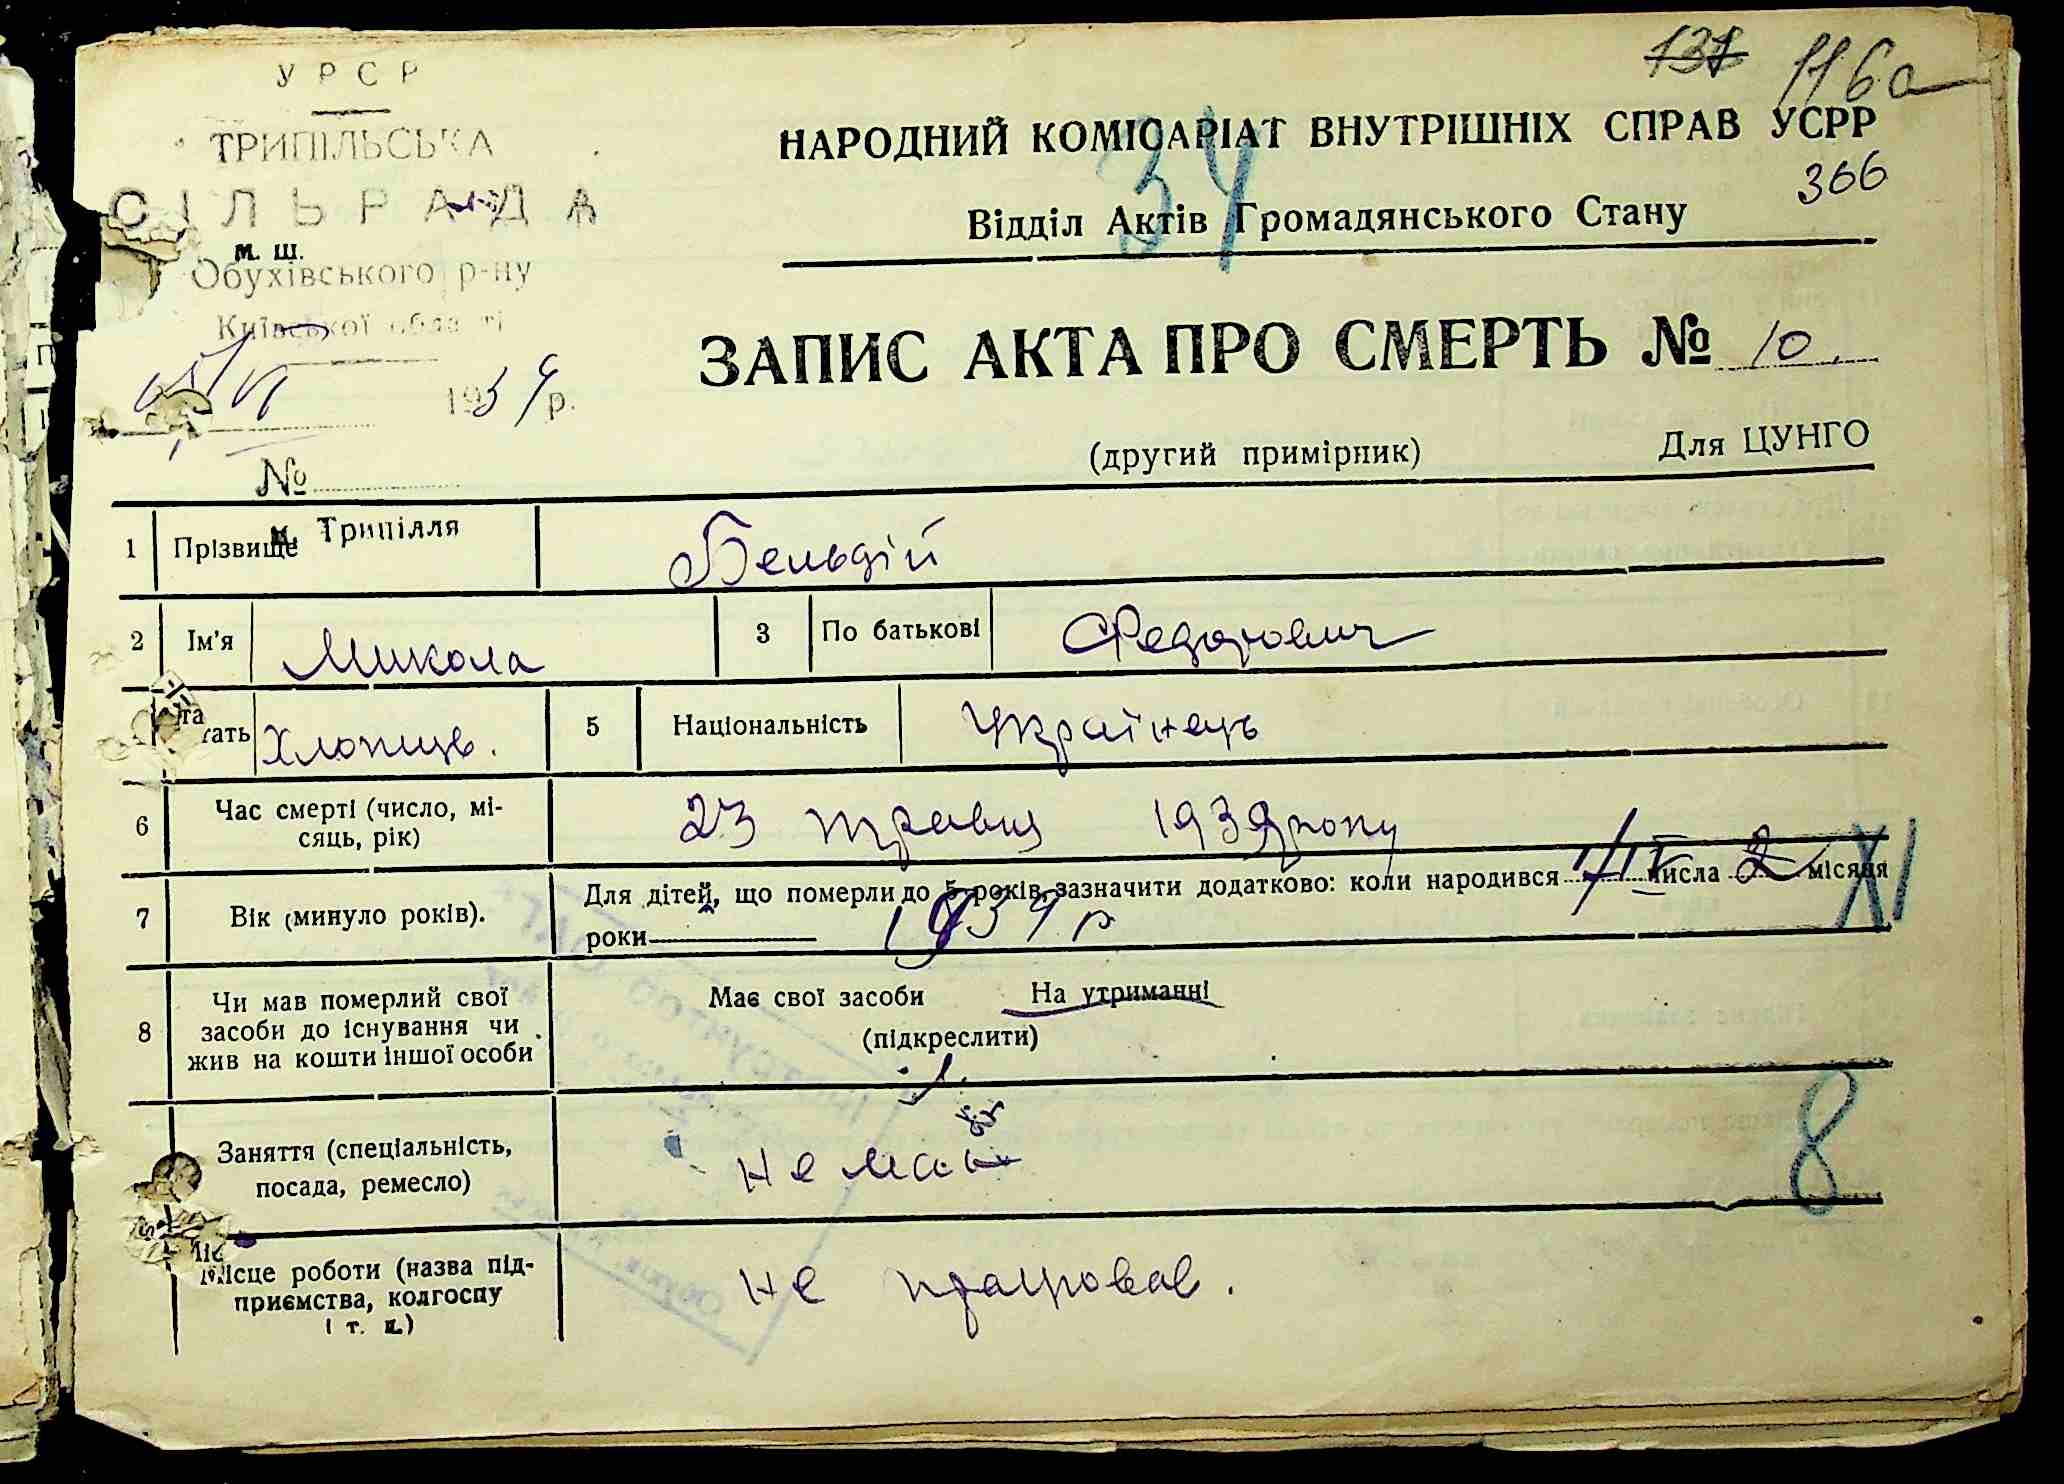 131 116а
У Р С Р
ТРИПІЛЬСЬКА
СІЛЬРАДА
м. ш.
Обухівського р-ну
Київської області
1934р.
№
с. Трипілля
НАРОДНИЙ КОМІСАРІАТ ВНУТРІШНІХ СПРАВ УСРР
34
366
Відділ Актів Громадянського Стану
ЗАПИС АКТА ПРО СМЕРТЬ № 10.
(другий примірник) Для ЦУНГО
1 Прізвище Бельдій
2 Ім'я Микола 3 По батькові Федорович
Хлопець. 5 Національність Українець
6 Час смерті (число, мі-
сяць, рік) 23 травня 1934 року
7 Вік (минуло років). Для дітей, що померли до 5 років, зазначити додатково: коли народився числа 2 місяця
роки 1934 р
XI
8 Чи мав померлий свої
засоби до існування чи
жив на кошти іншої особи
Має свої засоби На утриманні
(підкреслити)
Заняття (спеціальність,
посада, ремесло) не має
8
Місце роботи (назва під-
приємства, колгоспу
і т. п.) не працював.